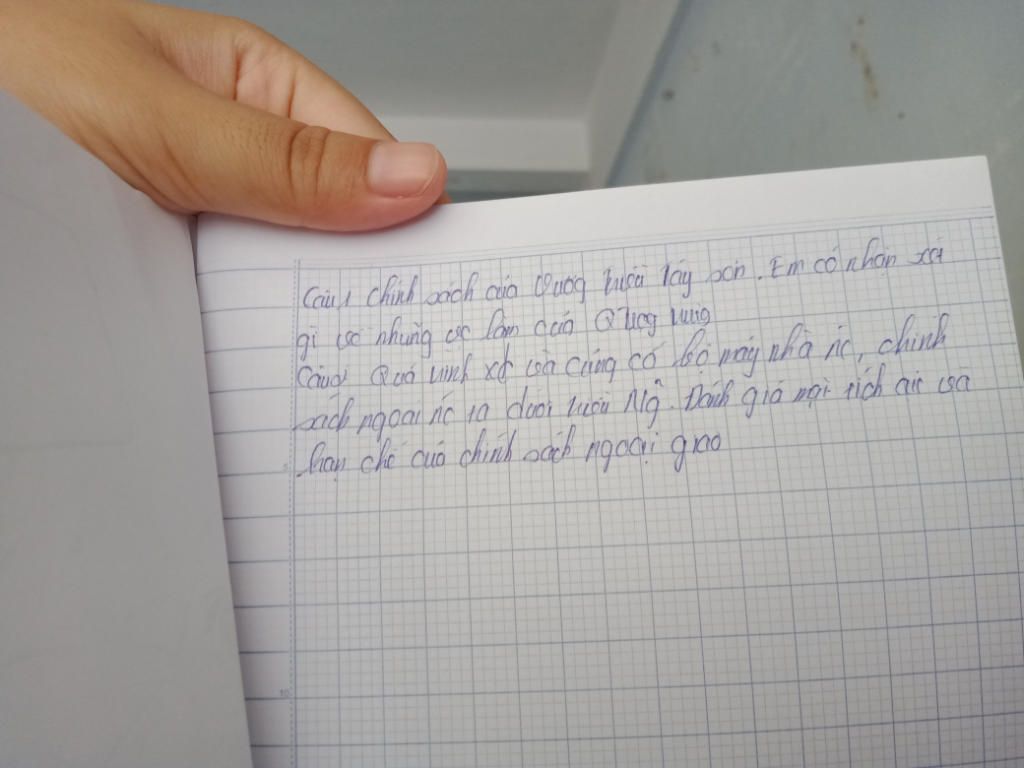 Câu 1 chính sách của Vương triều Tây Sơn. Em có nhận xét
gì về những việc làm của Quang Trung
Câu 2 Quá trình xd và củng cố bộ máy nhà nc, chính
sách ngoại nc ta dưới triều Ng~. Đánh giá mặt tích cực và
hạn chế của chính sách ngoại giao